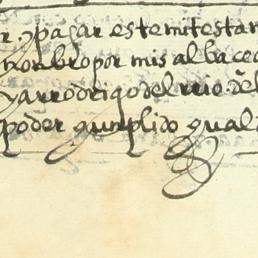 r y pagar este mi testam
nonbro por mis albacea
y a rrodrigo del rrio del
poder qunplido qual